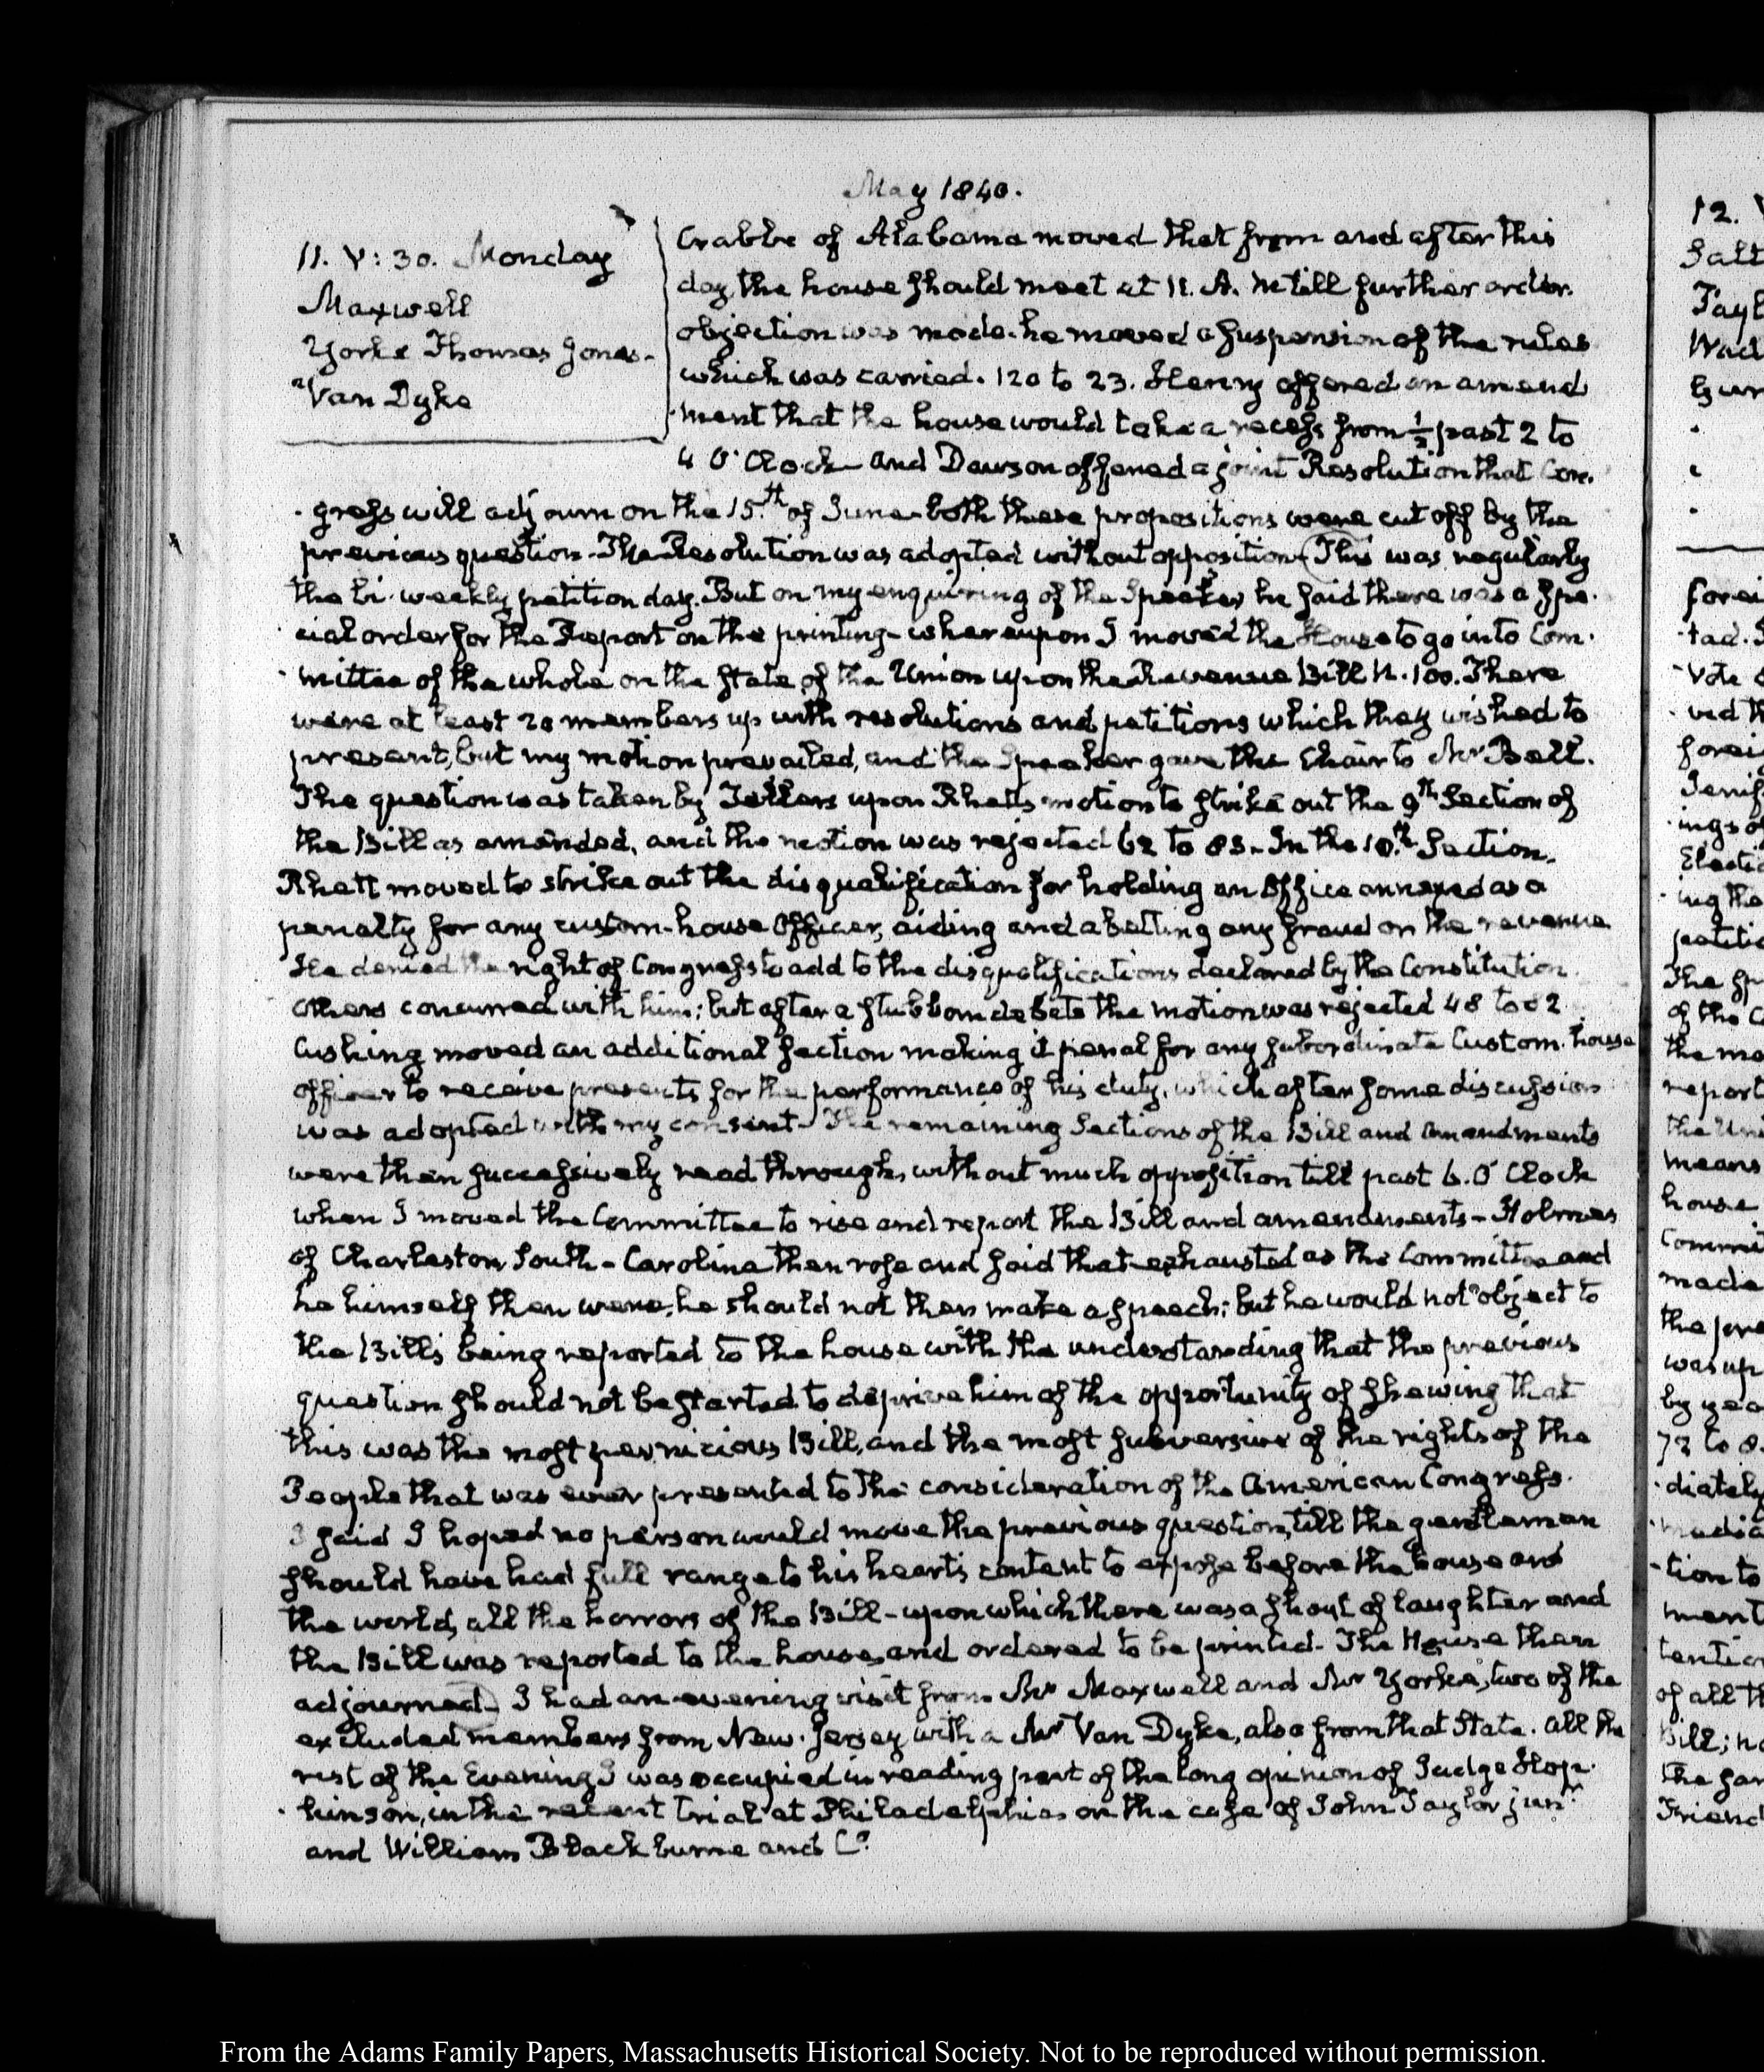 May 1840.
11. V: 30. Monday
Maxwell
Yorke Thomas Jones-
Van Dyke
Crabbe of Alabama moved that from and after this
day, the house should meet at 11. A. M till further order.
objection was made. he moved a suspension of the rules
which was carried. 120 to 23. Henry offered an amend
ment that the house would take a recess from ½ past 2 to
4 O'Clock and Dawson offered a joint Resolution that Con-
gress will adjourn on the 15th of June- both these propositions were cut off by the
previous question- The Resolution was adopted without opposition (This was regularly
the bi-weekly petition day. But on my enquiring of the Speaker, he said there was a spe-
cial order for the Report on the printing- whereupon I moved the House to go into Com-
mittee of the whole on the state of the Union upon the Revenue Bill N. 100. There
were at least 20 members up with resolutions and petitions which they wished to
present, but my motion prevailed, and the Speaker gave the Chair to Mr Bell.
The question was taken by Tellers upon Rhett's motion to strike out the 9th Section of
the Bill as amended, and the motion was rejected 62 to 83- In the 10th Section,
Rhett moved to strike out the disqualification for holding an Office annexed as a
penalty for any custom-house Officer, aiding and abetting any fraud on the revenue
He denied the right of Congress to add to the disqualifications declared by the Constitution.
Others concurred with him; but after a stubborn debate the motion was rejected 48 to 82
Cushing moved an additional section making it penal for any subordinate Custom-house
officer to receive presents for the performance of his duty, which after some discussion
was adopted with my consent- The remaining Sections of the Bill and Amendments
were then successively read through, without much opposition till past 6. O'Clock
when I moved the Committee to rise and report the Bill and amendments- Holmes
of Charleston South-Carolina then rose and said that exhausted as the Committee and
he himself then were, he should not then make a speech; but he would not object to
the Bill's being reported to the house with the understanding that the previous
question should not be started to deprive him of the opportunity of shewing that
this was the most pernicious Bill, and the most subversive of the rights of the
People that was ever presented to the consideration of the American Congress.
I said I hoped no person would move the previous question, till the gentleman
should have had full range to his heart's content to expose before the house and
the world, all the horrors of the Bill- upon which there was a shout of laughter and
the Bill was reported to the house, and ordered to be printed- The House then
adjourned) I had an evening visit from Mr Maxwell and Mr Yorke, two of the
excluded members from New-Jersey with a Mr Van Dyke, also from that State. All the
rest of the Evening I was occupied in reading part of the long opinion of Judge Hop-
kinson, in the recent trial at Philadelphia on the case of John Taylor junr
and William Blackburne and Co
12.
foreig
Vote
of the
the mo
report
the Un
means
house
made
was up
by yea
diately
tion to
ment
of all th
Bill; no
From the Adams Family Papers, Massachusetts Historical Society. Not to be reproduced without permission.